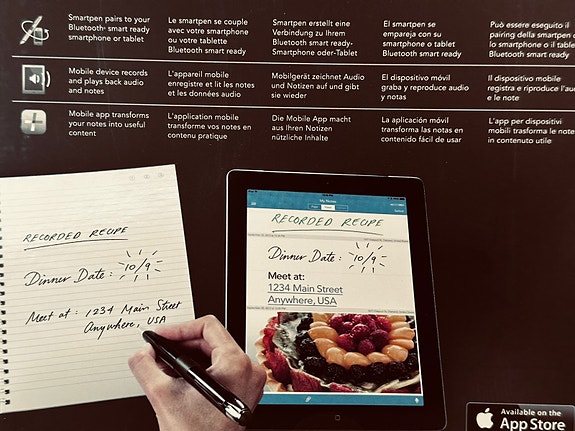 Smartpen pairs to your
Bluetooth smart ready
smartphone or tablet
Le smartpen se couple
avec votre smartphone
ou votre tablette
Bluetooth smart ready
Smartpen erstellt eine
Verbindung zu Ihrem
Bluetooth smart ready-
Smartphone oder-Tablet
El smartpen se
empareja con su
smartphone o tablet
Bluetooth smart ready
Può essere eseguito il
pairing della smartpen c
lo smartphone o il tablet
Bluetooth smart ready
Mobile device records
and plays back audio
and notes
L'appareil mobile
enregistre et lit les notes
et les données audio
Mobilgerät zeichnet Audio
und Notizen auf und gibt
sie wieder
El dispositivo móvil
graba y reproduce audio
y notas
Il dispositivo mobile
registra e riproduce l'au
e le note
Mobile app transforms
your notes into useful
content
L'application mobile
transforme vos notes en
contenu pratique
Die Mobile App macht
aus Ihren Notizen
nützliche Inhalte
La aplicación móvil
transforma las notas en
contenido fácil de usar
L'app per dispositivi
mobili trasforma le note
in contenuto utile
RECORDED RECIPE
Dinner Date: 10/9
Meet at: 1234 Main Street
Anywhere, USA
My Notes
RECORDED RECIPE
Dinner Date: 10/9
Meet at:
1234 Main Street
Anywhere, USA
Available on the
App Store